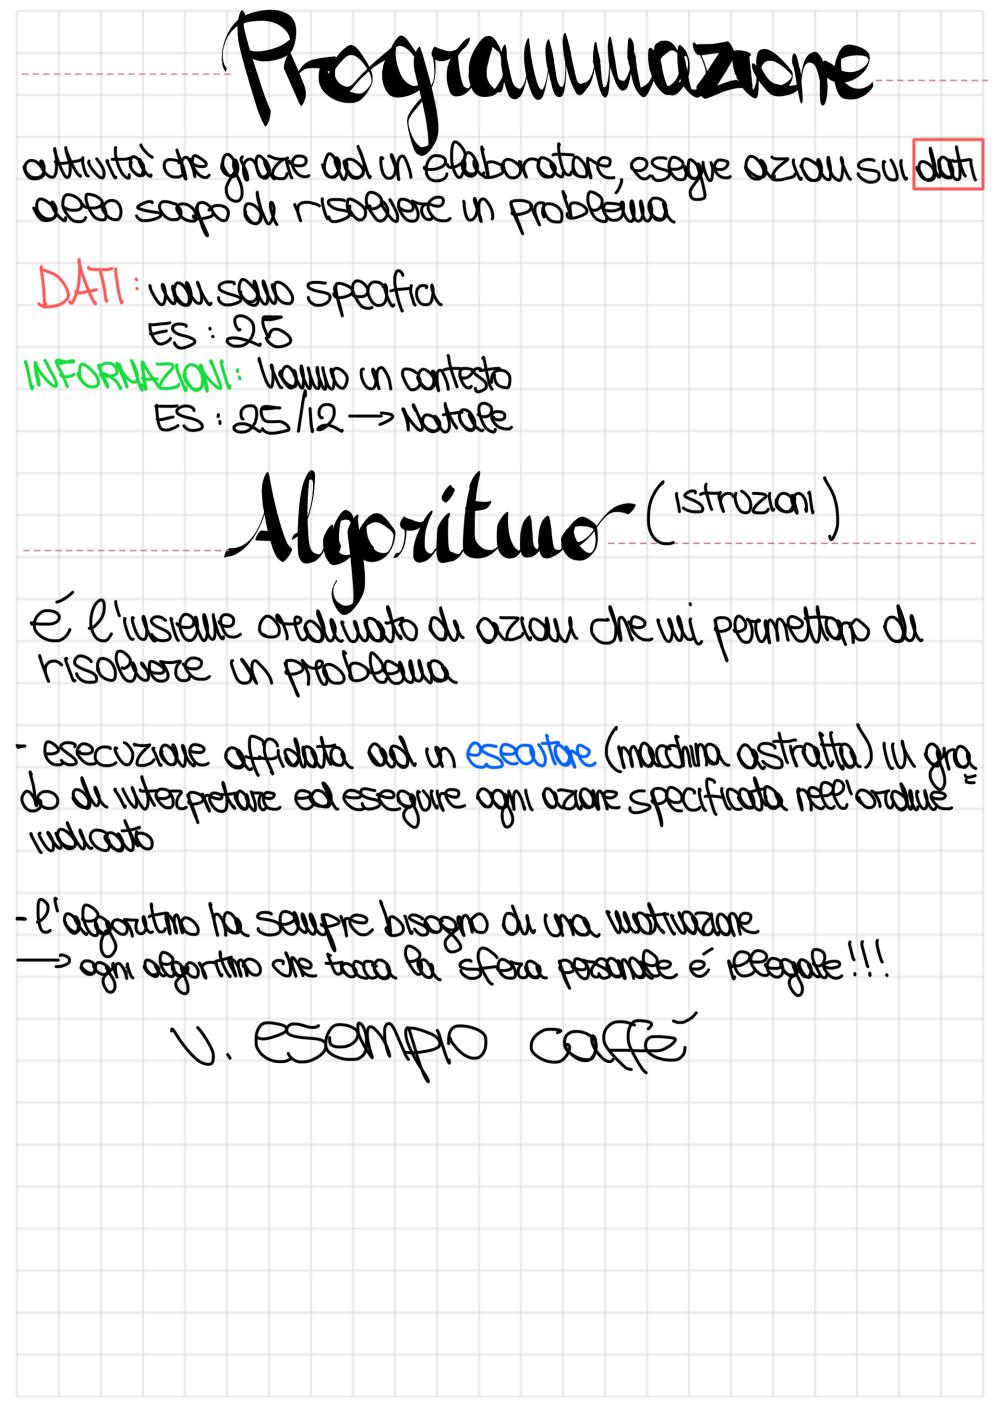 Programmazione
attività che grazie ad un elaboratore, esegue azioni sui dati
allo scopo di risolvere un problema
DATI: non sono specifici
ES: 25
INFORMAZIONI: hanno un contesto
ES: 25/12 → Natale
Algoritmo (istruzioni)
é l'insieme ordinato di azioni che mi permettono di
risolvere un problema
- esecuzione affidata ad un esecutore (macchina astratta) in gra=
do di interpretare ed eseguire ogni azione specificata nell'ordine
indicato
- l'algoritmo ha sempre bisogno di una motivazione
→ ogni algoritmo che tocca la sfera personale é illegale!!!
V. esempio caffé